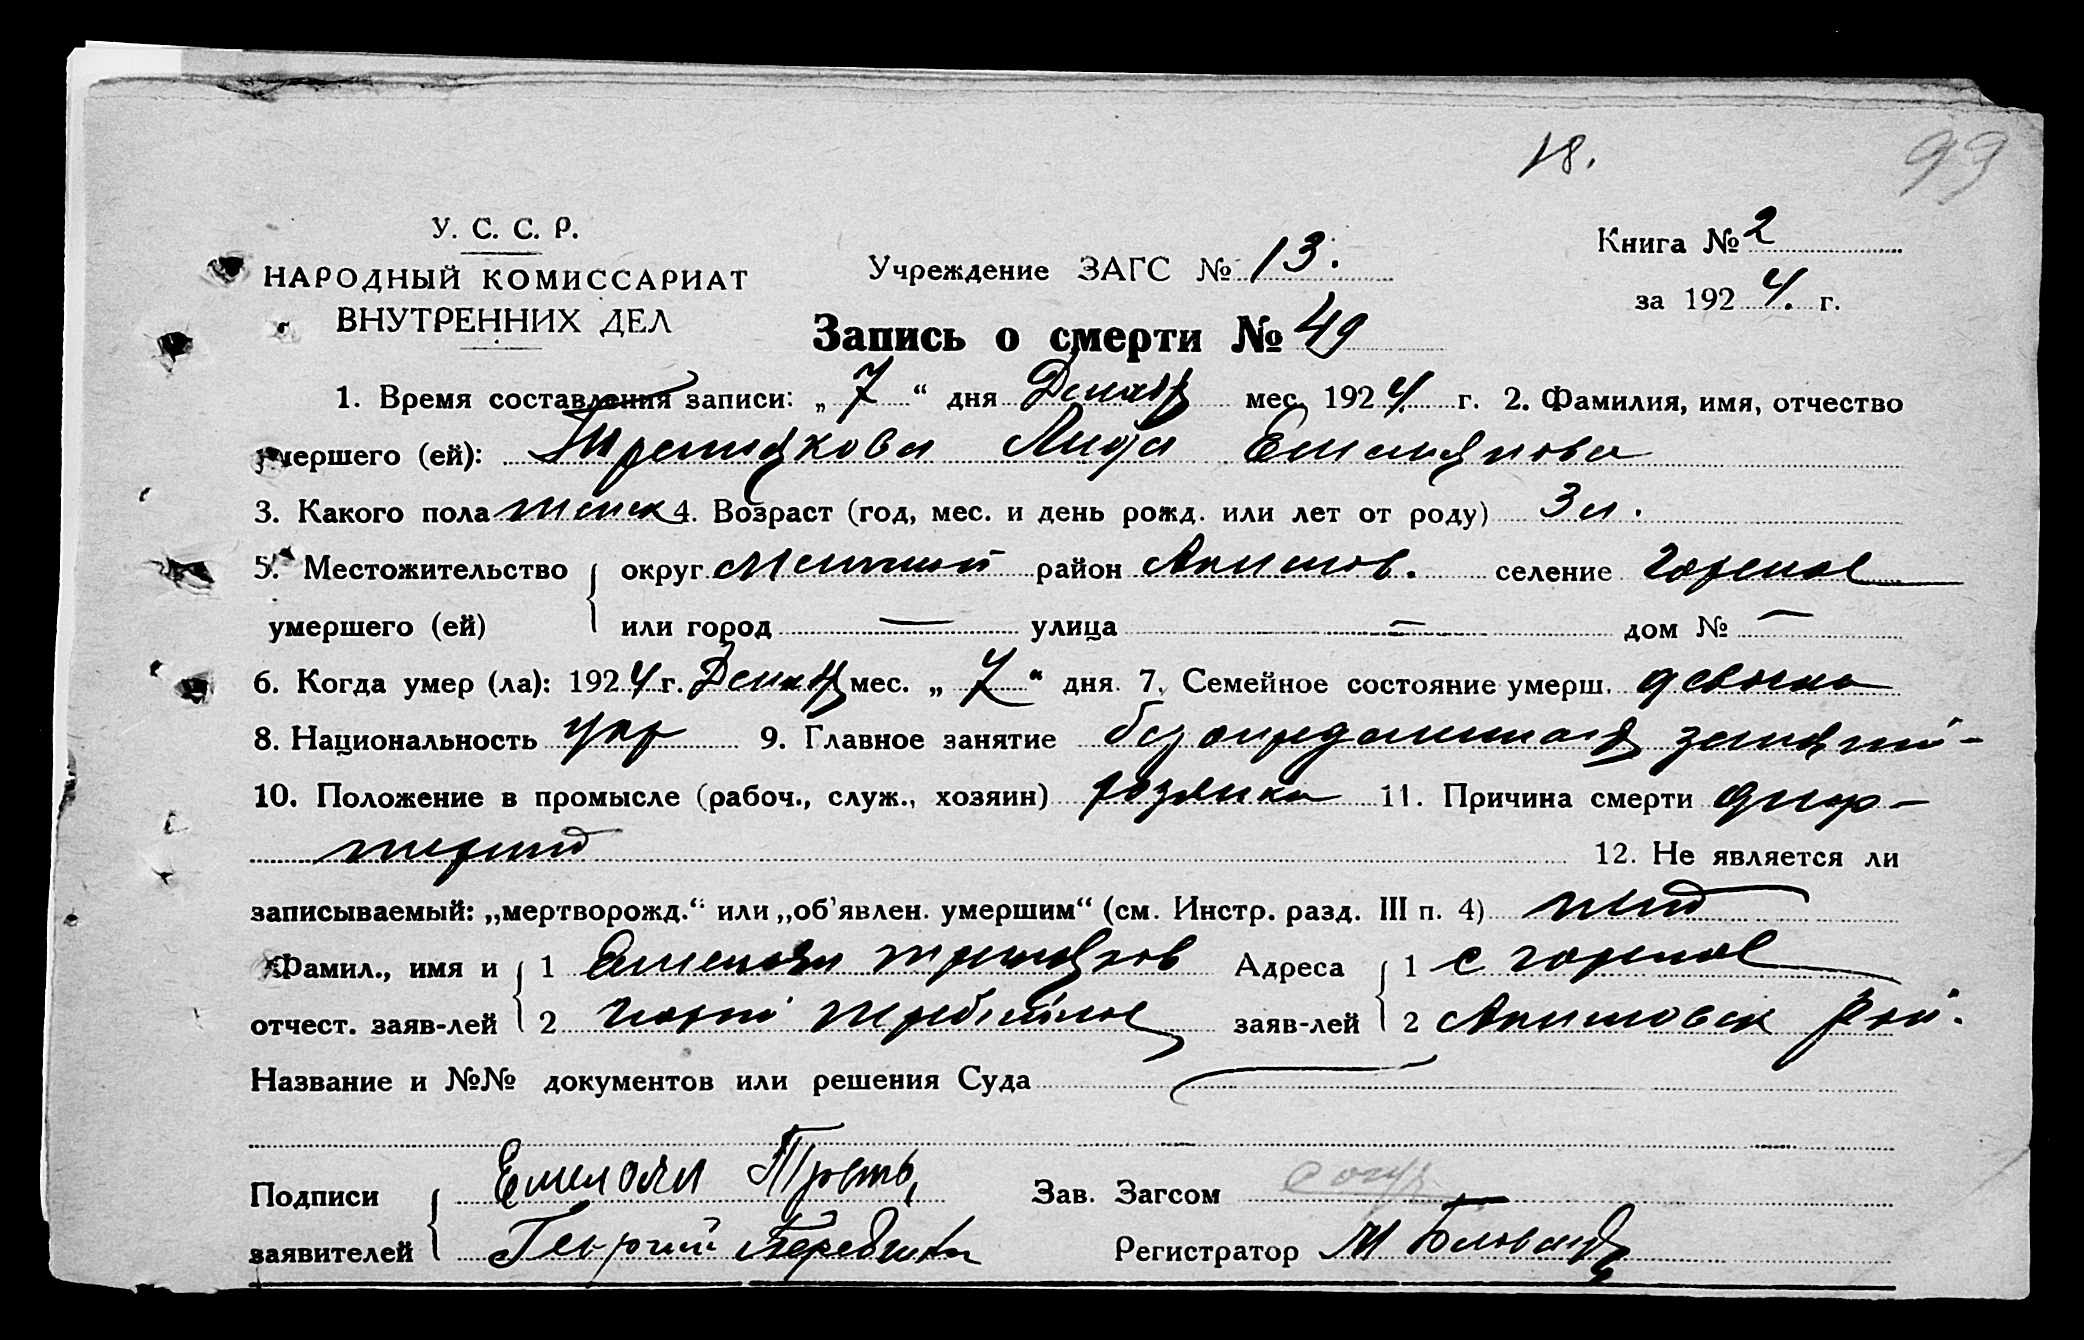 18.
99
У. С. С. Р.
НАРОДНЫЙ КОМИССАРИАТ
ВНУТРЕННИХ ДЕЛ
Учреждение ЗАГС № 13.
Книга № 2
за 1924. г.
Запись о смерти № 49
1. Время составления записи: „7“ дня Декабр мес. 1924. г. 2. Фамилия, имя, отчество
умершего (ей): Третякова Лида Емелянова
3. Какого пола женск 4. Возраст (год, мес. и день рожд. или лет от роду) 3 л.
5. Местожительство округ район Акимов. селение Горелое
умершего (ей) или город — улица — дом № —
6. Когда умер (ла): 1924 г. Декабр мес. „7“ дня. 7. Семейное состояние умерш. девочка
8. Национальность укр 9. Главное занятие
10. Положение в промысле (рабоч., служ., хозяин) хозяика 11. Причина смерти дифтерит
12. Не является ли
записываемый: „мертворожд.“ или „об’явлен. умершим“ (см. Инстр. разд. III п. 4) нет
Фамил., имя и 1 Емелян Третяков Адреса 1 с Горелое
отчест. заяв-лей 2 заяв-лей 2 Акимовск рай.
Название и №№ документов или решения Суда
Подписи Емелян Зав. Загсом
заявителей Георгий Регистратор М